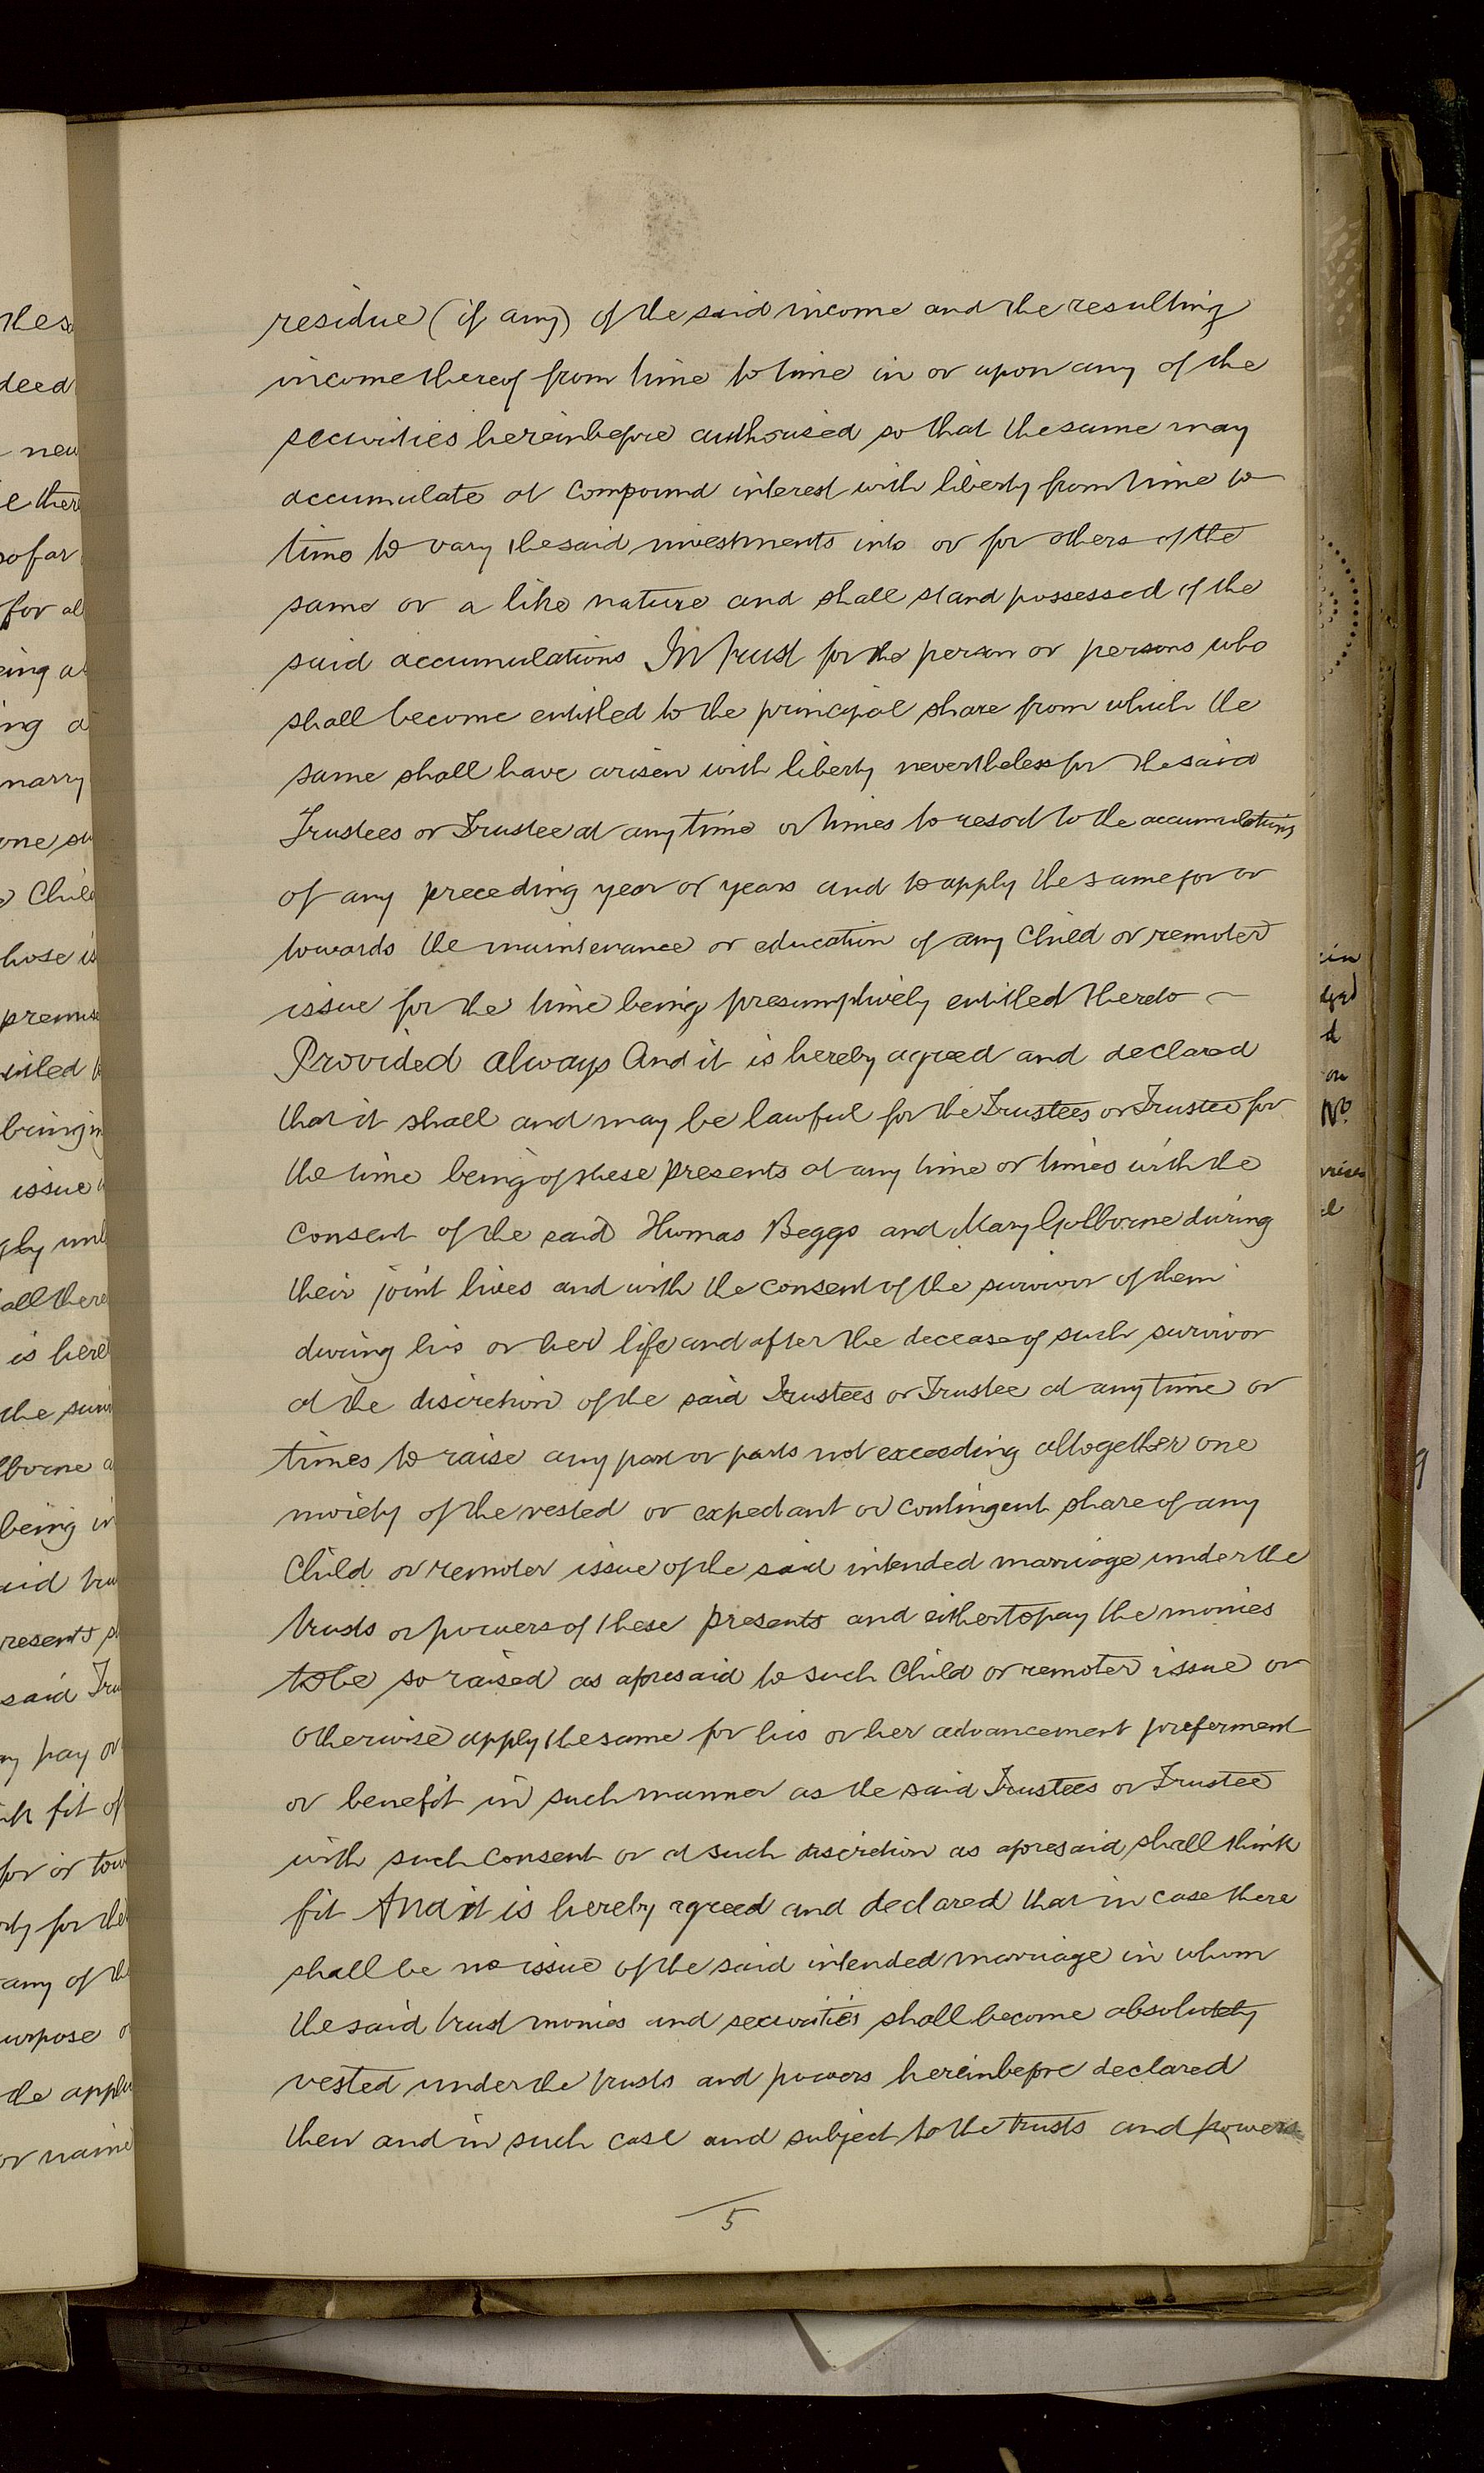 residue (if any) of the said income and the resulting
income thereof from time to time in or upon any of the
securities hereinbefore authorised so that the same may
accumulate at Compound interest with liberty from time to
time to vary the said investments into or for others of the
same or a like nature and shall stand possessed of the
said accumulations In trust for the person or persons who
shall become entitled to the principal share from which the
same shall have arisen with liberty nevertheless for the said
Trustees or Trustee at any time or times to resort to the accumulations
of any preceding year or years and to apply the same for or
towards the maintenance or education of any Child or remoter
issue for the time being presumptively entitled thereto
Provided always And it is hereby agreed and declared
that it shall and may be lawful for the Trustees or Trustee for
the time being of these presents at any time or times with the
consent of the said Thomas Beggs and Mary Golborne during
their joint lives and with the consent of the survivor of them
during his or her life and after the decease of such survivor
at the discretion of the said Trustees or Trustee at any time or
times to raise any part or parts not exceeding altogether one
moiety of the vested or expectant or contingent share of any
Child or remoter issue of the said intended marriage under the
trusts or powers of these presents and either to pay the monies
to be so raised as aforesaid to such Child or remoter issue or
otherwise apply the same for his or her advancement preferment
or benefit in such manner as the said Trustees or Trustee
with such Consent or at such discretion as aforesaid shall think
fit And it is hereby agreed and declared that in case there
shall be no issue of the said intended marriage in whom
the said trust monies and securities shall become absolutely
vested under the trusts and powers hereinbefore declared
then and in such case and subject to the trusts and powers
5